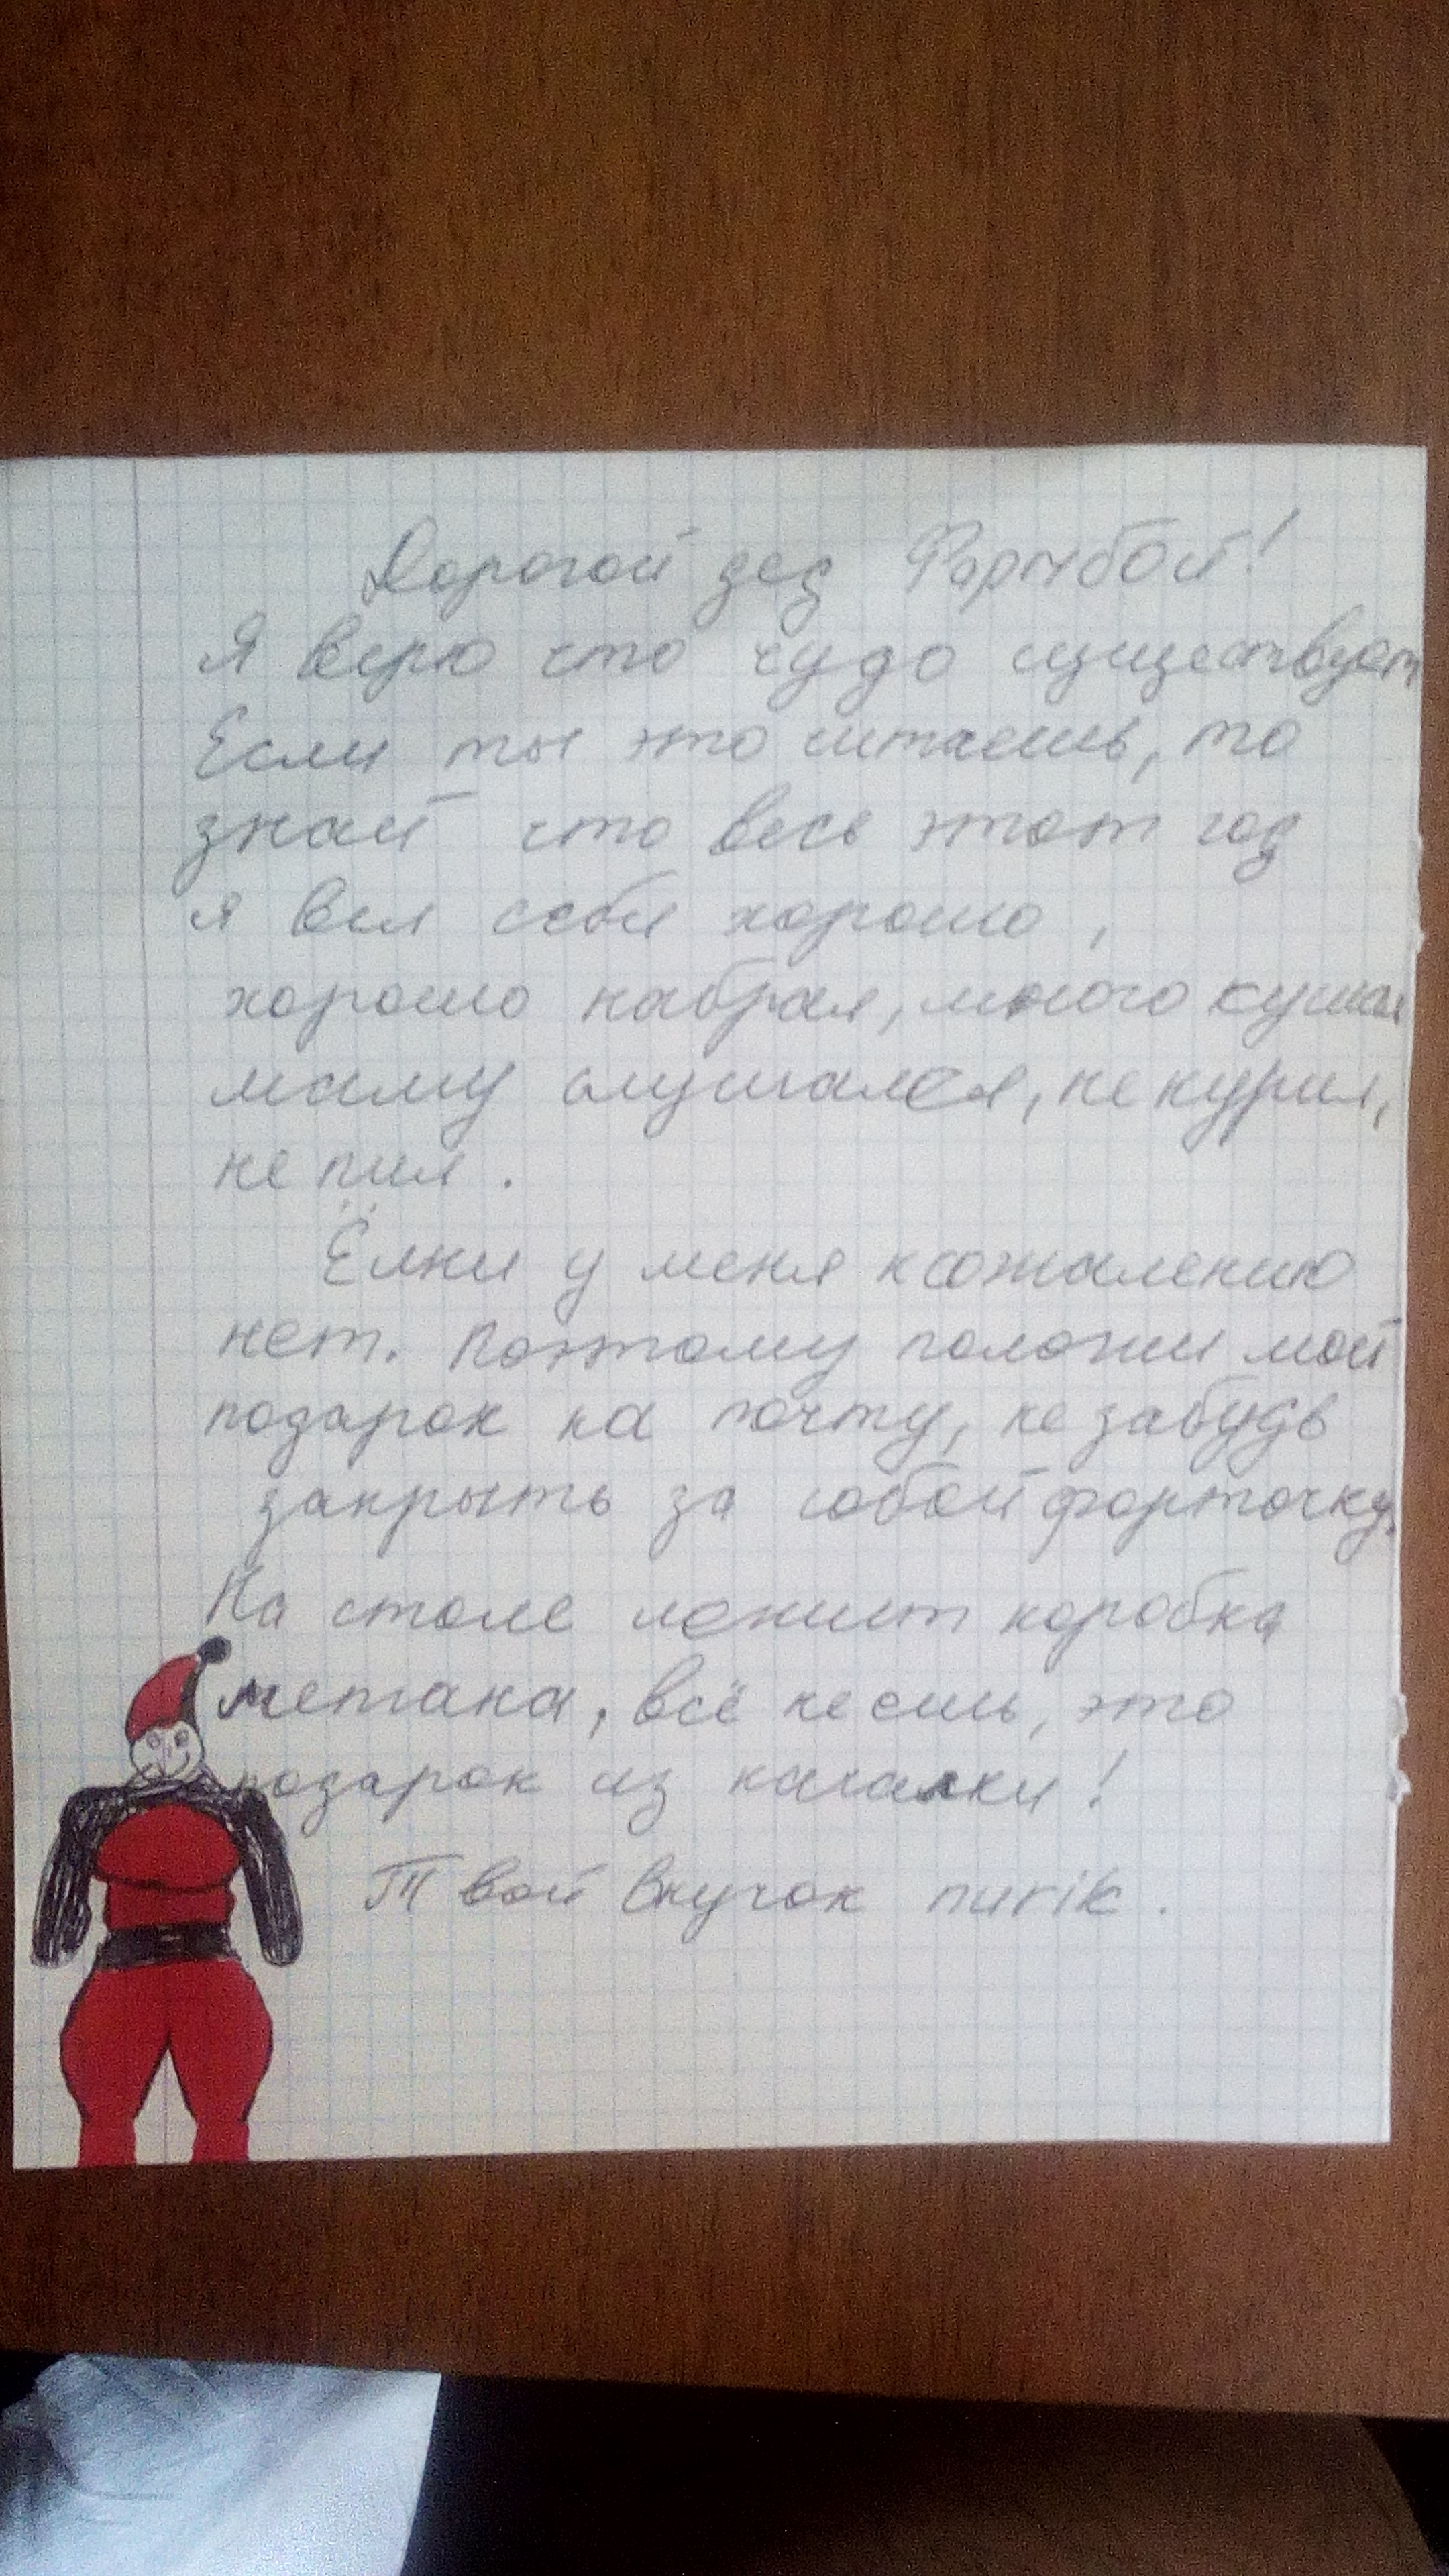 Дорогой дед Фармбой!
Я верю что чудо существует
Если ты это читаешь, то
знай что весь этот год
я вел себя хорошо,
хорошо набрал, много кушал
маму слушался, не курил,
не пил.
Ёлки у меня к сожалению
нет. Поэтому положи мой
подарок на почту, не забудь
закрыть за собой форточку.
На столе лежит коробка
метана, всё не ешь, это
подарок из качалки!
Твой внучок nurik.